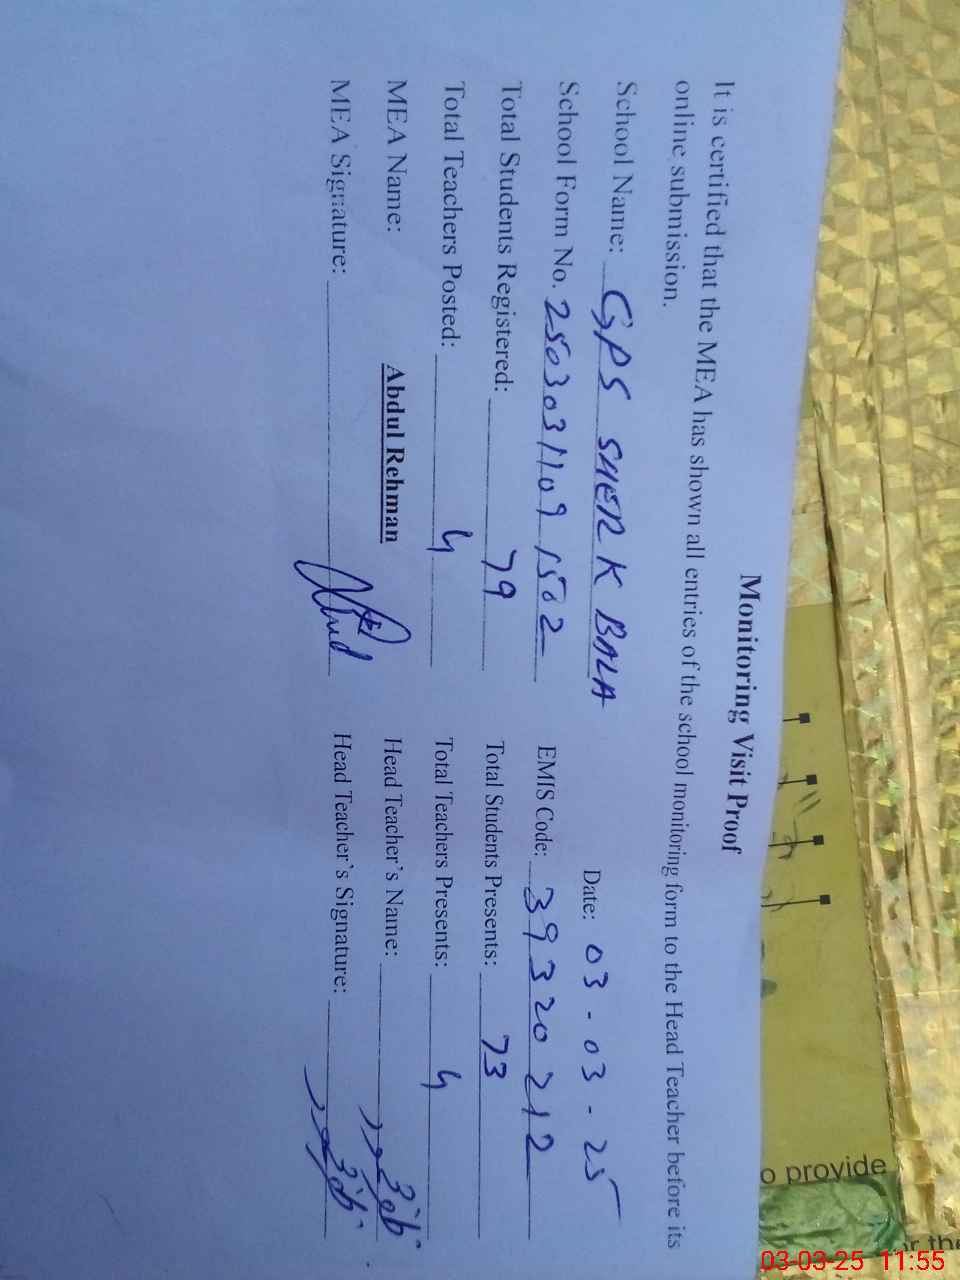 Monitoring Visit Proof
It is certified that the MEA has shown all entries of the school monitoring form to the Head Teacher before its
online submission.
School Name: GPS SHER K BALA Date: 03-03-25
School Form No. 2503031109 1502 EMIS Code: 39320212
Total Students Registered: 79 Total Students Presents: 73
Total Teachers Posted: 4 Total Teachers Presents: 4
MEA Name: Abdul Rehman Head Teacher's Name:
MEA Signature: Head Teacher's Signature:
o provide
or the
03-03-25 11:55